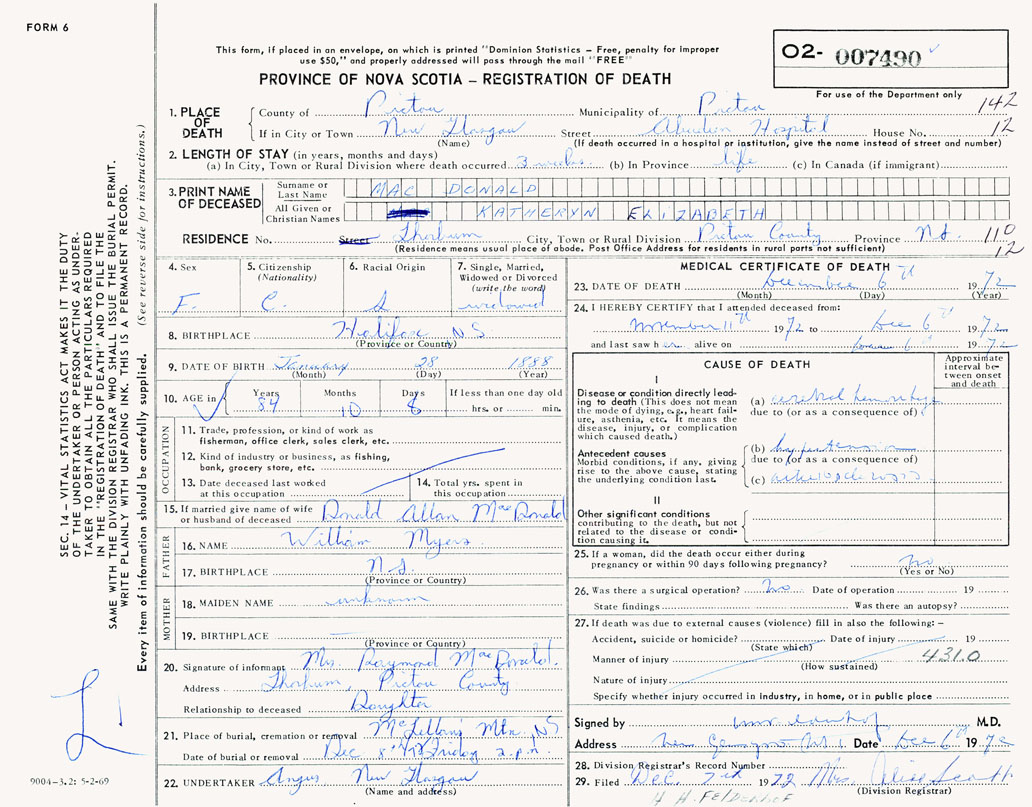 FORM 6
This form, if placed in an envelope, on which is printed "Dominion Statistics – Free, penalty for improper
use $50," and properly addressed will pass through the mail "FREE"
PROVINCE OF NOVA SCOTIA – REGISTRATION OF DEATH
O2- 007490
For use of the Department only
142
12
1. PLACE OF DEATH
County of Pictou Municipality of Pictou
If in City or Town New Glasgow Street Aberdeen Hospital House No.
(Name) (If death occurred in a hospital or institution, give the name instead of street and number)
2. LENGTH OF STAY (in years, months and days)
(a) In City, Town or Rural Division where death occurred 3 weeks (b) In Province life (c) In Canada (if immigrant)
3. PRINT NAME OF DECEASED
Surname or Last Name MAC DONALD
All Given or Christian Names KATHERYN ELIZABETH
RESIDENCE No. Street Thorburn City, Town or Rural Division Pictou County Province N.S. 110
(Residence means usual place of abode. Post Office Address for residents in rural parts not sufficient) 12
4. Sex
F.
5. Citizenship
(Nationality)
C.
6. Racial Origin
7. Single, Married,
Widowed or Divorced
(write the word)
widowed
8. BIRTHPLACE Halifax N.S.
(Province or Country)
9. DATE OF BIRTH January 28 1888
(Month) (Day) (Year)
10. AGE in
Years Months Days If less than one day old
84 10 8 hrs. or min.
OCCUPATION
11. Trade, profession, or kind of work as
fisherman, office clerk, sales clerk, etc.
12. Kind of industry or business, as fishing,
bank, grocery store, etc.
13. Date deceased last worked
at this occupation
14. Total yrs. spent in
this occupation
15. If married give name of wife
or husband of deceased Donald Allan MacDonald
FATHER
16. NAME William Myers
17. BIRTHPLACE N.S.
(Province or Country)
MOTHER
18. MAIDEN NAME unknown
19. BIRTHPLACE
(Province or Country)
20. Signature of informant Mrs. Raymond MacDonald.
Address Thorburn, Pictou County
Relationship to deceased Daughter
21. Place of burial, cremation or removal McLellans Mtn. NS
Date of burial or removal Dec 8th/72 Friday 2 p.m.
22. UNDERTAKER Angus New Glasgow
(Name and address)
MEDICAL CERTIFICATE OF DEATH
23. DATE OF DEATH December 6th 1972
(Month) (Day) (Year)
24. I HEREBY CERTIFY that I attended deceased from:
November 11th 1972 to Dec 6th 1972
and last saw her alive on 6th 1972
CAUSE OF DEATH
Approximate
interval be-
tween onset
and death
I
Disease or condition directly lead-
ing to death (This does not mean
the mode of dying, e.g., heart fail-
ure, asthenia, etc. It means the
disease, injury, or complication
which caused death.)
(a) cerebral hemorrhage
due to (or as a consequence of)
Antecedent causes
Morbid conditions, if any, giving
rise to the above cause, stating
the underlying condition last.
(b) hypertension
due to (or as a consequence of)
(c) arteriosclerosis
II
Other significant conditions
contributing to the death, but not
related to the disease or condi-
tion causing it.
25. If a woman, did the death occur either during
pregnancy or within 90 days following pregnancy? no
(Yes or No)
26. Was there a surgical operation? no Date of operation 19
State findings Was there an autopsy?
27. If death was due to external causes (violence) fill in also the following: –
Accident, suicide or homicide? Date of injury 19
(State which)
Manner of injury 431.0
(How sustained)
Nature of injury
Specify whether injury occurred in industry, in home, or in public place
Signed by M.D.
Address Date Dec 6th 1972
28. Division Registrar's Record Number
29. Filed Dec. 7th 1972 Mrs. Alice Scott
(Division Registrar)
H H. FELDENHOF
SEC. 14 – VITAL STATISTICS ACT MAKES IT THE DUTY
OF THE UNDERTAKER OR PERSON ACTING AS UNDER-
TAKER TO OBTAIN ALL THE PARTICULARS REQUIRED
IN THE "REGISTRATION OF DEATH" AND TO FILE THE
SAME WITH THE DIVISION REGISTRAR WHO SHALL ISSUE THE BURIAL PERMIT.
WRITE PLAINLY WITH UNFADING INK. THIS IS A PERMANENT RECORD.
Every item of information should be carefully supplied. (See reverse side for instructions.)
9004-3.2: 5-2-69